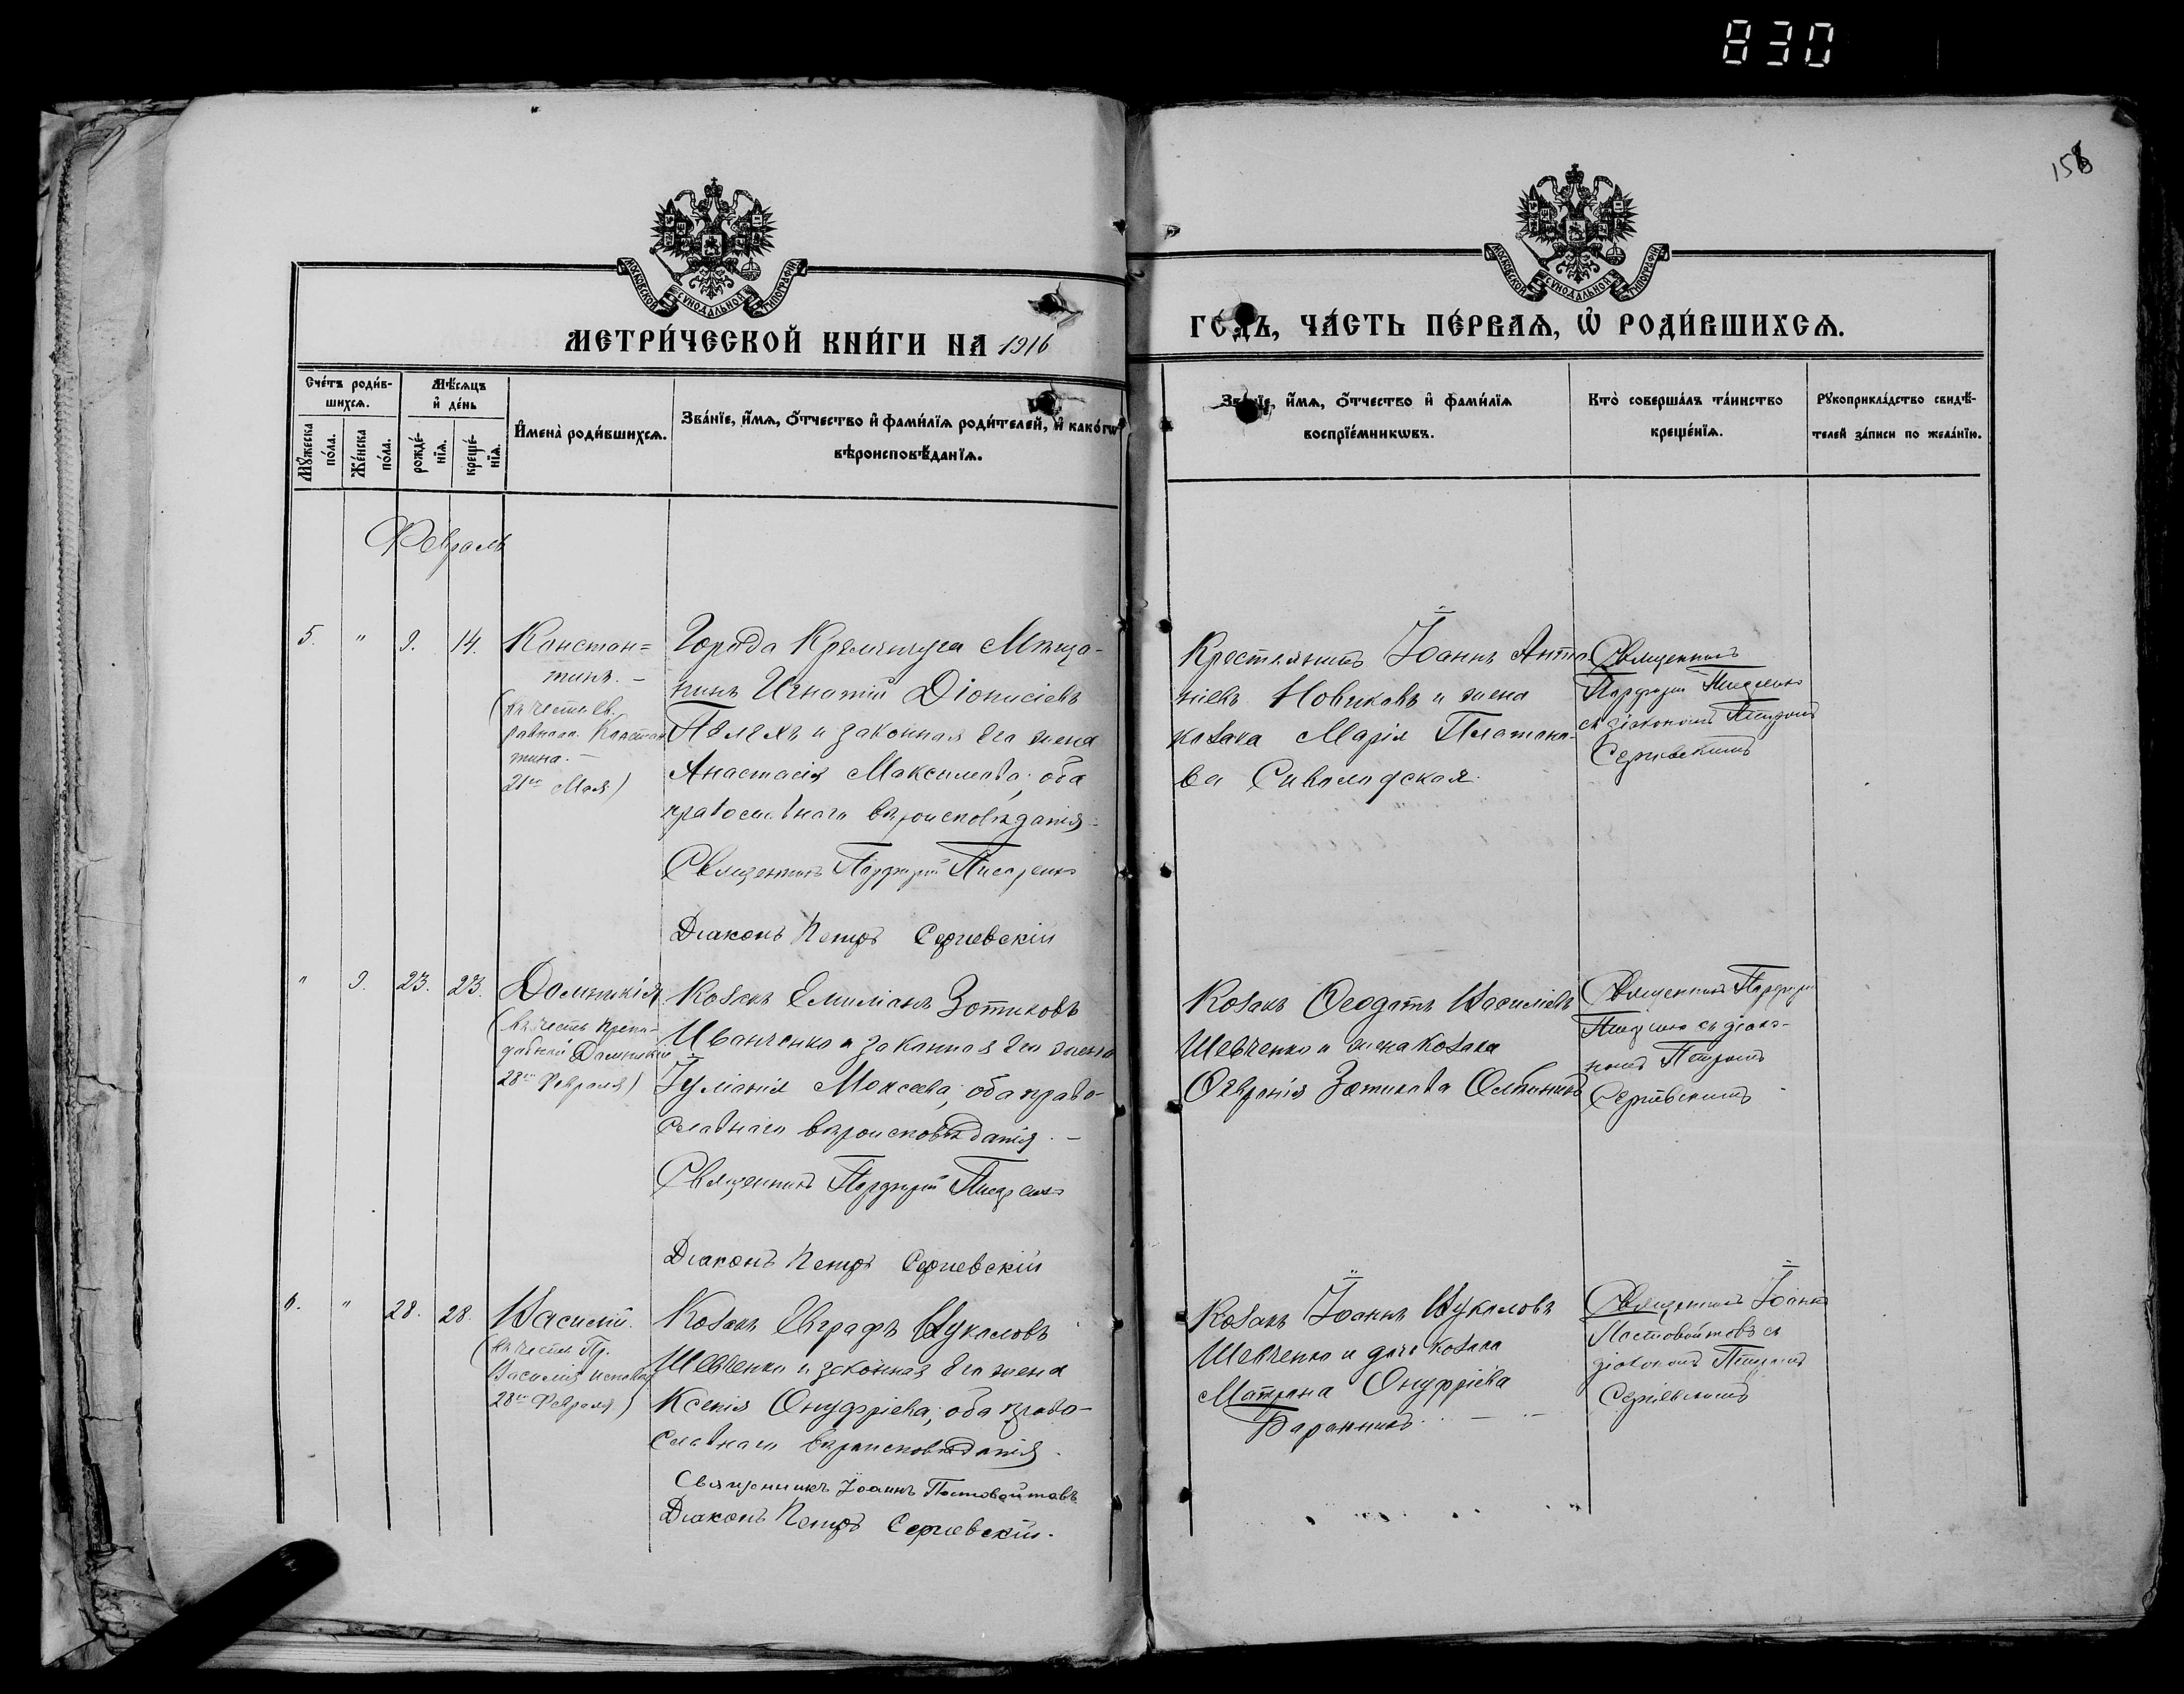 830
158
МОСКОВСКОЙ СѴНОДАЛЬНОЙ ТИПОГРАФІИ
МОСКОВСКОЙ СѴНОДАЛЬНОЙ ТИПОГРАФІИ
МЕТРИ́ЧЕСКОЙ КНИ́ГИ НА 1916
ГОДЪ, ЧА́СТЬ ПЕ́РВАѦ, Ѡ҆ РОДИ́ВШИХСѦ.
Сче́тъ роди́в-
шихсѧ.
Мꙋ́жеска по́ла.
Же́нска по́ла.
Мѣ́сѧцъ
и҆ де́нь
рожде́-
нїѧ.
креще́-
нїѧ.
И҆мена̀ роди́вшихсѧ.
Зва́нїе, и҆́мѧ, ѻ҆́тчество и҆ фами́лїѧ роди́телей, и҆ како́гѡ
вѣроисповѣ́данїѧ.
Зва́нїе, и҆́мѧ, ѻ҆́тчество и҆ фами́лїѧ
воспрїе́мникѡвъ.
Кто̀ соверша́лъ та́инство
креще́нїѧ.
Рꙋкоприкла́дство свидѣ́-
телей за́писи по жела́нїю.
Февраль
5. " 9. 14.
Констан=
тинъ. –
(въ честь св.
равноап. Констан
тина. –
21го Мая)
Города Кременчуга Мѣща-
нинъ Игнатій Діонисіевъ
и законная его жена
Анастасія Максимова; оба
православнаго вѣроисповѣданія.
Священникъ Порфирій Писаренко
Діаконъ Петръ Сергіевскій
Крестьянинъ Іоаннъ Анто
ніевъ Новиковъ и жена
козака Марія Платоно-
ва
Священникъ
Порфирій Писаренко
съ діакономъ Петромъ
Сергіевскимъ
" 9. 23. 23.
Домникія
(въ честь препо-
добной Домникіи
28го Февраля)
Козакъ Емиліанъ Зотиковъ
Иванченко и законная его жена
Іуліанія Моксеева; оба право-
славнаго вѣроисповѣданія. –
Священникъ Порфирій Писаренко
Діаконъ Петръ Сергіевскій
Козакъ Ѳеодотъ Василіевъ
Шевченко и жена козака
Зотикова
Священникъ Порфирій
Писаренко съ діако-
номъ Петромъ
Сергіевскимъ
6. " 28. 28.
Василій.
(въ честь Пр.
Василія исповѣд
28го Февраля)
Козакъ Евграфъ Вуколовъ
Шевченко и законная его жена
Ксенія Онуфріева; оба право-
славнаго вѣроисповѣданія.
Священникъ Іоаннъ Постовойтовъ
Діаконъ Петръ Сергіевскій.
Козакъ Іоаннъ Вуколовъ
Шевченко и дочь козака
Матрона Онуфріева
Баранникъ
Священникъ Іоаннъ
Постовойтовъ съ
діакономъ Петромъ
Сергіевскимъ